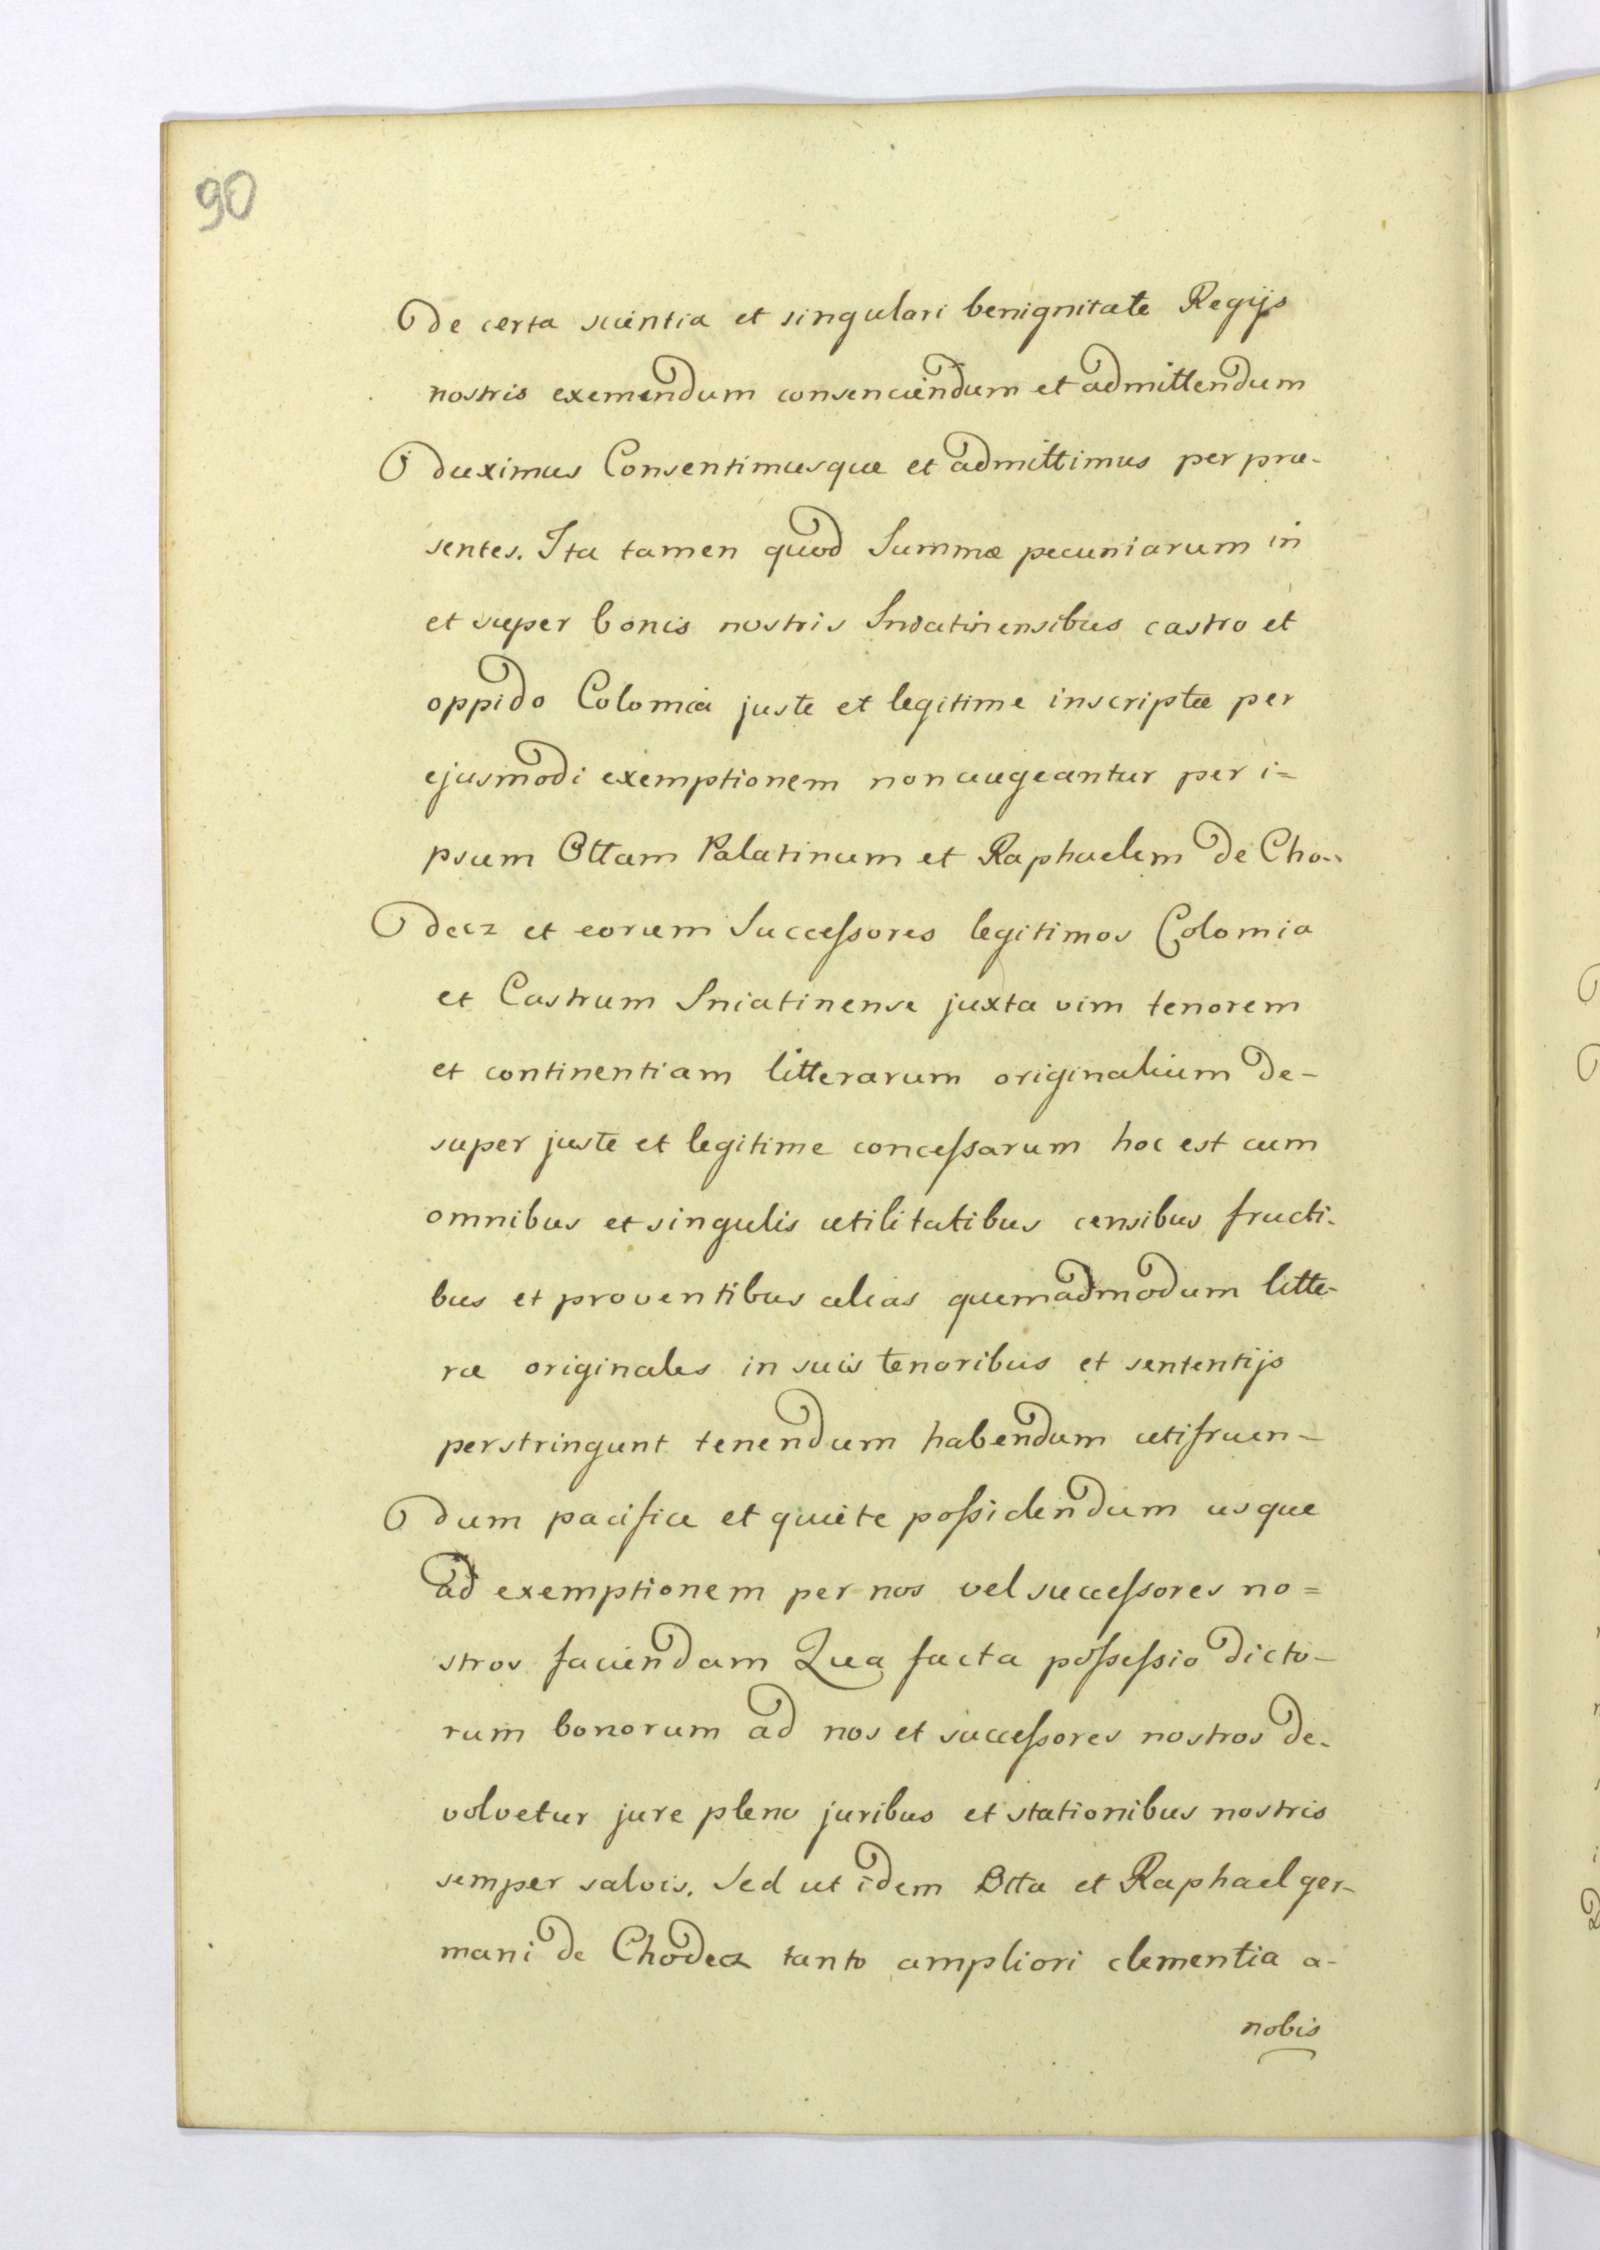 90
de certa scientia et singulari benignitate Regijs
nostris exemendum consenciendum et admittendum
duximus Consentimusque et admittimus per præ-
sentes. Ita tamen quod Summæ pecuniarum in
et super bonis nostris Sniatinensibus castro et
oppido Colomia juste et legitime inscriptæ per
ejusmodi exemptionem non augeantur per i=
psum Ottam Palatinum et Raphaelem de Cho-
decz et eorum Successores legitimos Colomia
et Castrum Sniatinense juxta vim tenorem
et continentiam litterarum originalium de-
super juste et legitime concessarum hoc est cum
omnibus et singulis utilitatibus censibus fructi-
bus et proventibus alias quemadmodum litte-
ræ originales in suis tenoribus et sententijs
perstringunt tenendum habendum utifruen-
dum pacifice et quiete possidendum usque
ad exemptionem per nos vel successores no=
stros faciendam Qua facta possessio dicto-
rum bonorum ad nos et successores nostros de-
volvetur jure pleno juribus et stationibus nostris
semper salvis. Sed ut idem Otta et Raphael ger-
mani de Chodecz tanto ampliori clementia a-
nobis